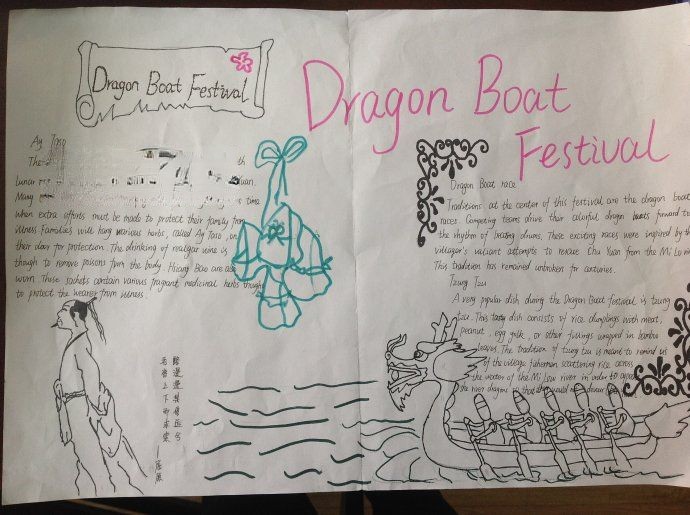 Dragon Boat Festival
Dragon Boat
Festival
Ay Taso
The
lunar
Many time
when extra efforts must be made to protect their family from
illness. Families will hang various herbs, called Ay Taso, on
their door for protection. The drinking of realgar wine is
though to remove poisons form the body. Hiang Bao are also
worn. These sachets contain various fragrant medicinal herbs thought
to protect the wearer from illness.
路漫漫其修远兮
吾将上下而求索
—屈原
Dragon Boat race
Traditions at the center of this festival are the dragon boat
races. Competing teams drive their colorful dragon boats forward to
the rhythm of beating drums. These exciting races were inspired by the
villager's valiant attempts to rescue Chu Yuan from the Mi Lo
This tradition has remained unbroken for centuries.
Tzung Tzu
A very popular dish during the Dragon Boat festival is tzung
tzu. This tasty dish consists of rice dumplings with meat,
peanut, egg yolk, or other fillings wrapped in bamboo
leaves. The tradition of tzung tzu is meant to remind us
of the village fisherman scattering rice across
the water of the Mi Low river in order to
the river dragons so that they would not devour